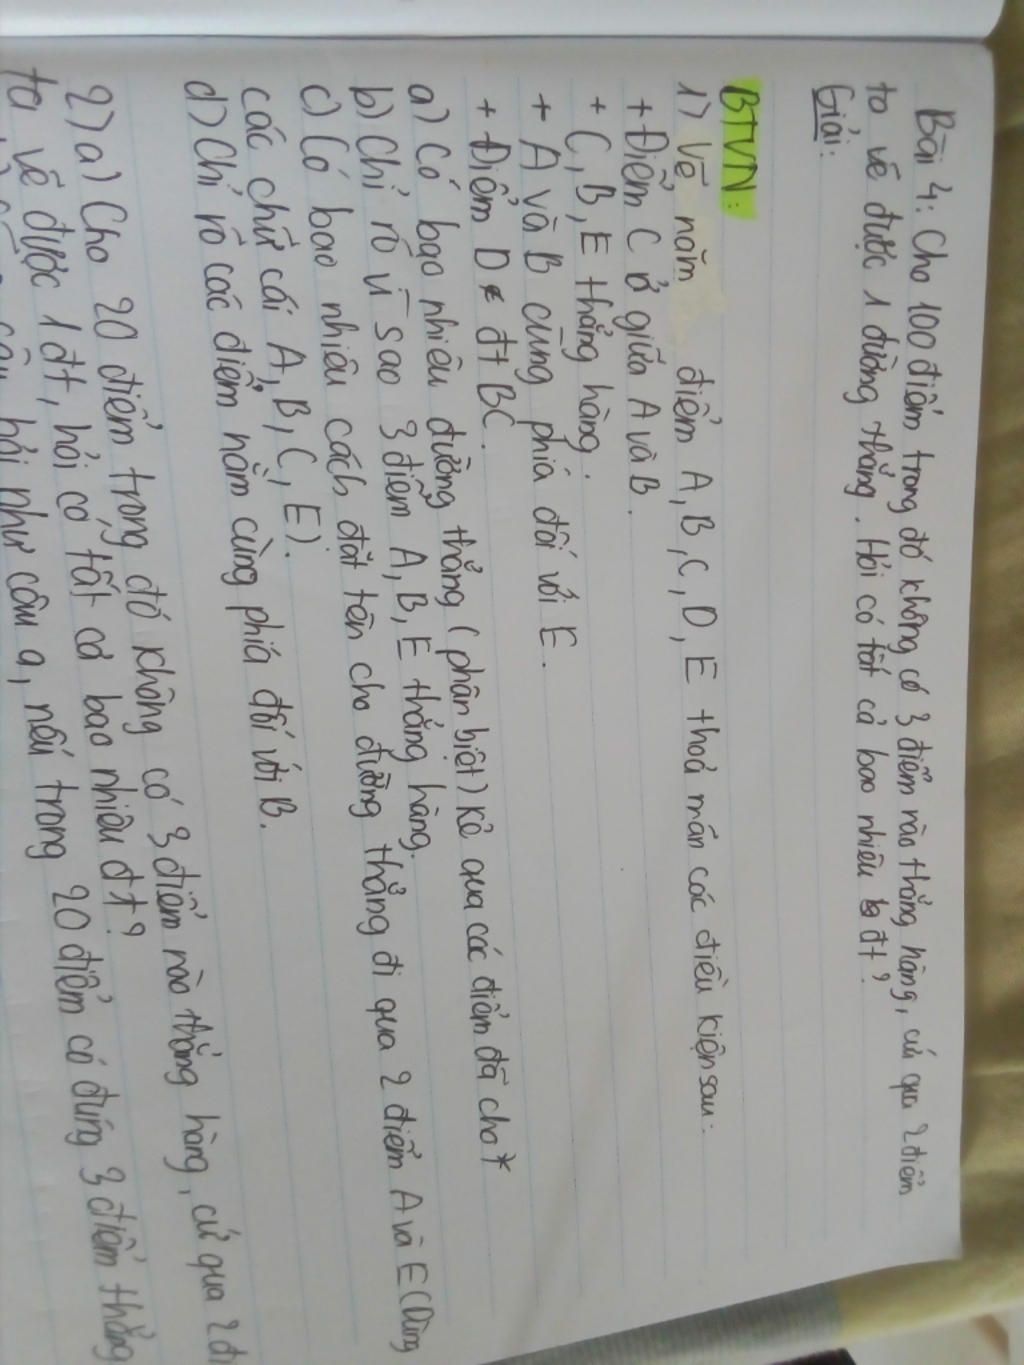 Bài 4: Cho 100 điểm trong đó không có 3 điểm nào thẳng hàng, cứ qua 2 điểm
ta vẽ được 1 đường thẳng. Hỏi có tất cả bao nhiêu đt?
Giải:
BTVN:
1) Vẽ năm điểm A, B, C, D, E thoả mãn các điều kiện sau:
+ Điểm C ở giữa A và B.
+ C, B, E thẳng hàng.
+ A và B cùng phía đối với E.
+ Điểm D ∉ đt BC.
a) Có bao nhiêu đường thẳng (phân biệt) kẻ qua các điểm đã cho *
b) Chỉ rõ vì sao 3 điểm A, B, E thẳng hàng.
c) Có bao nhiêu cách đặt tên cho đường thẳng đi qua 2 điểm A và E (Dùng
các chữ cái A, B, C, E).
d) Chỉ rõ các điểm nằm cùng phía đối với B.
2) a) Cho 20 điểm trong đó không có 3 điểm nào thẳng hàng, cứ qua 2 đi
ta vẽ được 1 đt, hỏi có tất cả bao nhiêu đt?
hỏi như câu a, nếu trong 20 điểm có đúng 3 điểm thẳng